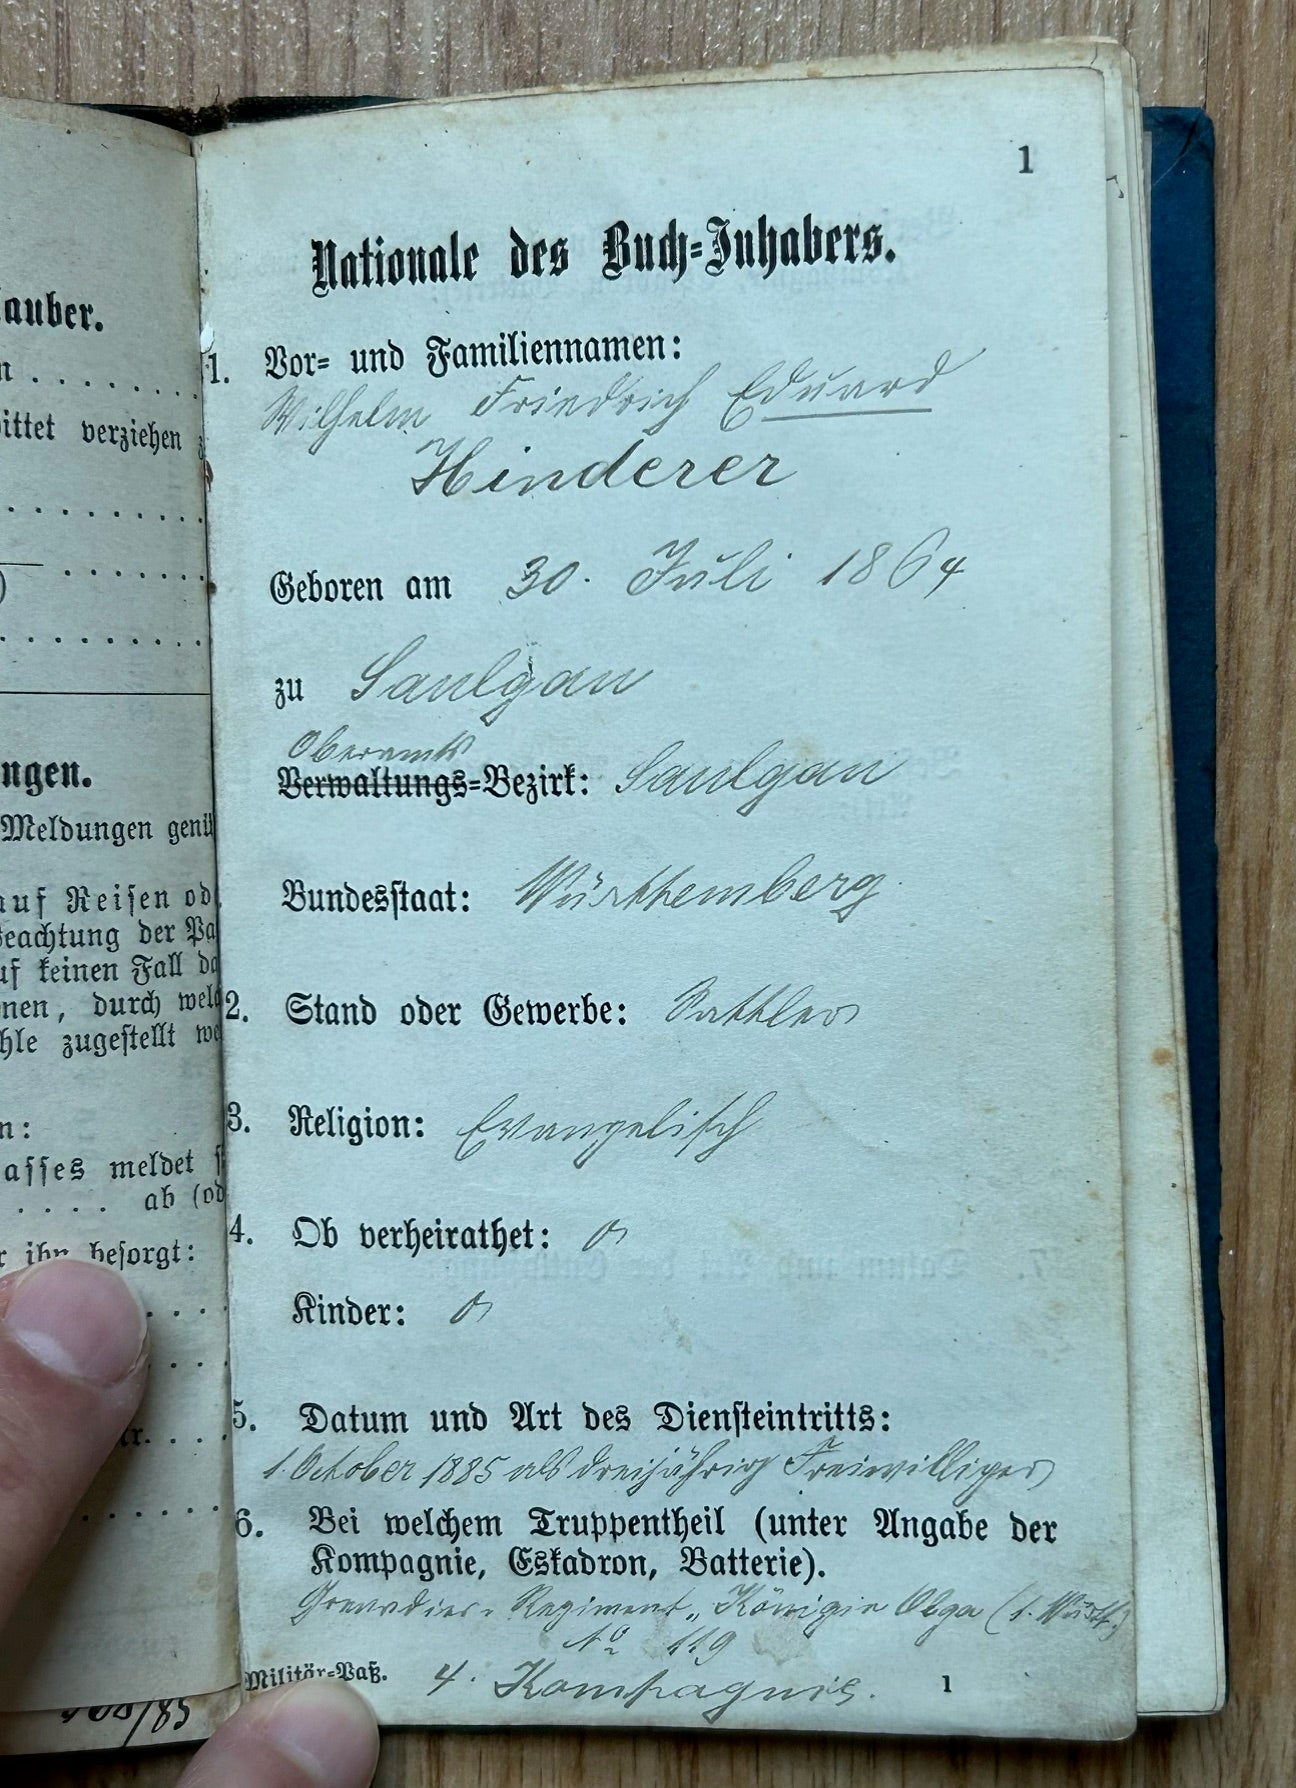 auber.
n . . . . . . .
ittet verziehen
ngen.
Meldungen genü
auf Reisen od
Beachtung der Pa
uf keinen Fall da
nen, durch welc
hle zugestellt we
n:
asses meldet s
. . . . ab (od
r ihn besorgt:
1
Nationale des Buch-Inhabers.
1. Vor- und Familiennamen:
Wilhelm Friedrich Eduard
Hinderer
Geboren am 30. Juli 1864
zu Saulgau
Oberamts
Verwaltungs-Bezirk: Saulgau
Bundesstaat: Württemberg.
2. Stand oder Gewerbe: Sattler
3. Religion: Evangelisch
4. Ob verheirathet:
Kinder:
5. Datum und Art des Diensteintritts:
1. October 1885 als dreijährig Freiwilliger
6. Bei welchem Truppentheil (unter Angabe der
Kompagnie, Eskadron, Batterie).
Grenadier-Regiment „Königin Olga (1. Württ.)
No 119
4. Kompagnie.
Militär-Paß. 1